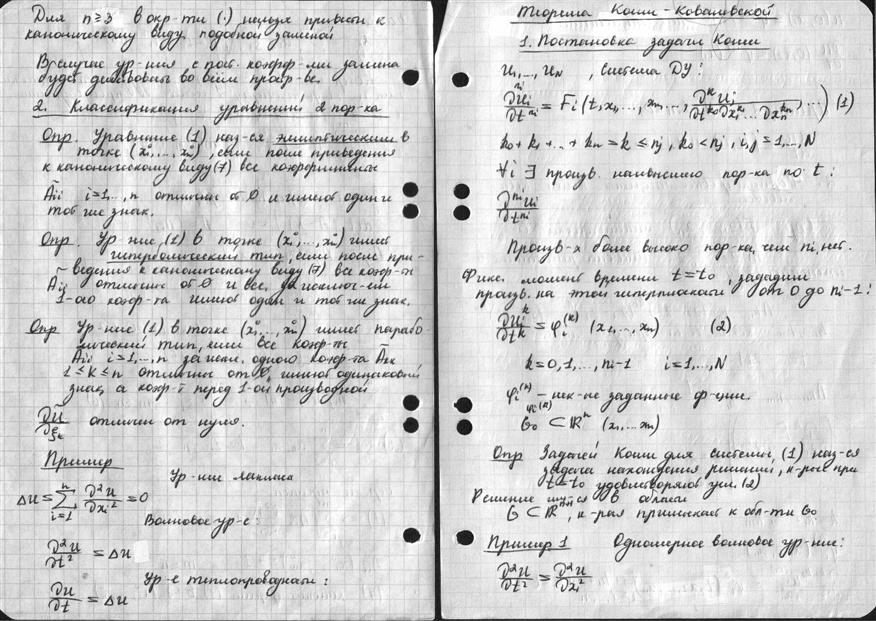 Для n≥3 в окр-ти (·) нельзя привести к
каноническому виду подобной заменой
В случае ур-ния с пост. коэфф-ми замена
будет действовать во всём простр-ве.
2. Классификация уравнений 2 пор-ка
Опр Уравнение (1) наз-ся эллиптическим в
точке (x₁⁰,...,xₙ⁰), если после приведения
к каноническому виду (7) все коэффициенты
Ãᵢᵢ i=1,...,n отличны от 0 и имеют один и
тот же знак.
Опр. Ур-ние (1) в точке (x₁⁰,...,xₙ⁰) имеет
гиперболический тип, если после при-
ведения к каноническому виду (7) все коэф-ты
Ãᵢᵢ отличны от 0 и все, за исключ-ем
1-ого коэф-та имеют один и тот же знак.
Опр Ур-ние (1) в точке (x₁⁰,...,xₙ⁰) имеет парабо-
лический тип, если все коэф-ты
Ãᵢᵢ i=1,...,n за искл. одного коэф-та Ãₖₖ
1≤k≤n отличны от 0, имеют одинаковый
знак, а коэф-т перед 1-ой производной
∂ũ/∂ξₖ отличен от нуля.
Пример
Ур-ние Лапласа
Δu = Σᵢ₌₁ⁿ ∂²u/∂xᵢ² = 0
Волновое ур-е:
∂²u/∂t² = Δu
Ур-е теплопроводности:
∂u/∂t = Δu
Теорема Коши-Ковалевской
1. Постановка задачи Коши
u₁,...,u_N , система ДУ:
∂^{nᵢ}uᵢ/∂t^{nᵢ} = Fᵢ(t, x₁,..., xₙ,..., ∂ᵏuⱼ/∂t^{k₀}∂x₁^{k₁}...∂xₙ^{kₙ},...) (1)
k₀+k₁+...+kₙ=k ≤ nⱼ, k₀<nⱼ, i,j=1,...,N
∀i ∃ произв. наивысшего пор-ка по t:
∂^{nᵢ}uᵢ/∂t^{nᵢ}
Произв-х более высоко пор-ка, чем nᵢ, нет.
Фикс. момент времени t=t₀, зададим
произв. на этой гиперплоскости от 0 до nᵢ-1:
∂ᵏuᵢ/∂tᵏ = φᵢ⁽ᵏ⁾ (x₁,...,xₙ) (2)
k=0,1,...,nᵢ-1 i=1,...,N
φᵢ⁽ᵏ⁾ – нек-ые заданные ф-ции.
φᵢ⁽ᵏ⁾
G₀ ⊂ ℝⁿ (x₁,...xₙ)
Опр Задачей Коши для системы (1) наз-ся
задача нахождения решений, к-рые при
t=t₀ удовлетворяют усл. (2)
Решение ищется в области
G ⊂ ℝⁿ⁺¹, к-рая примыкает к обл-ти G₀
Пример 1 Одномерное волновое ур-ние:
∂²u/∂t² = ∂²u/∂xᵢ²